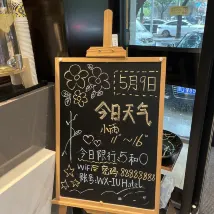 5月9日
今日天气
小雨
11°~16°
今日限行:5和0
WiFi密码 88888888
账号:WX-IUHotel